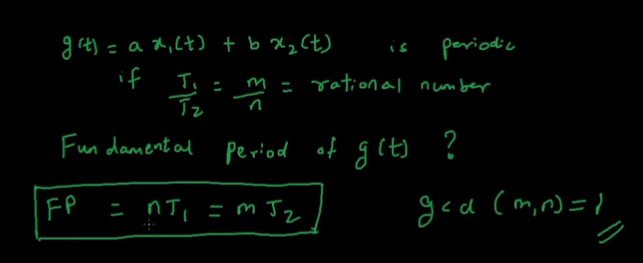 g(t) = a x₁(t) + b x₂(t) is periodic
if T₁/T₂ = m/n = rational number
Fundamental period of g(t) ?
FP = nT₁ = mT₂
gcd (m,n) = 1